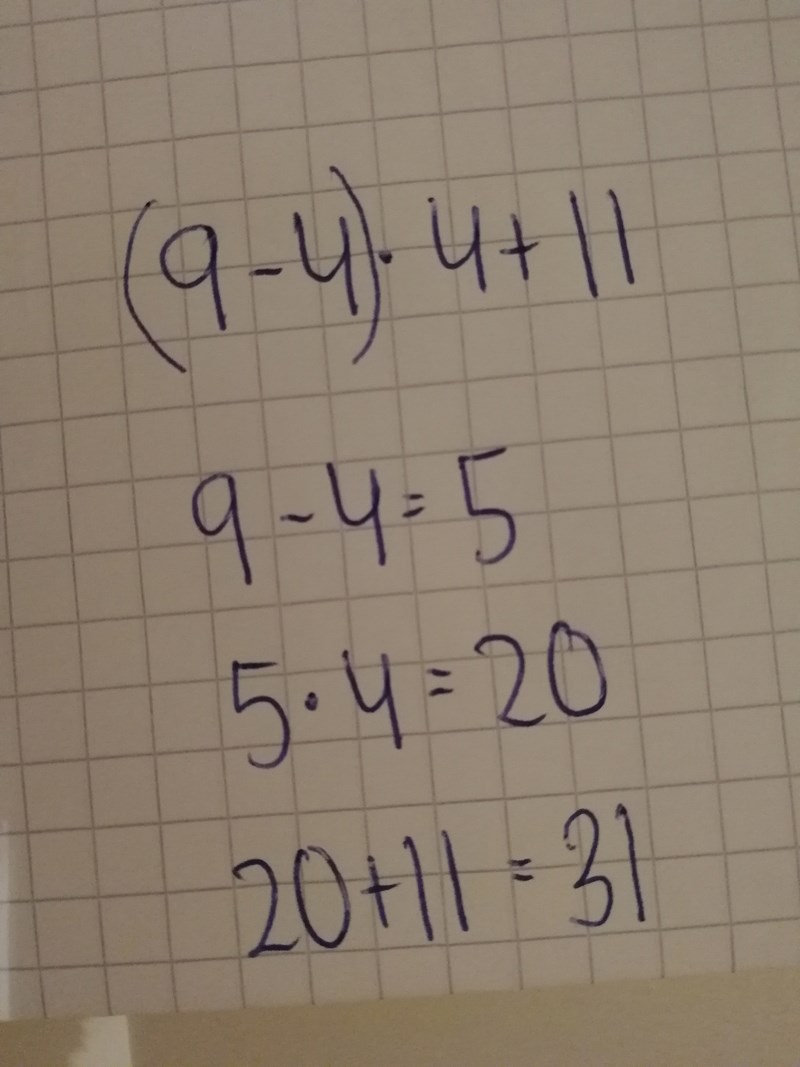 (9-4)·4+11
9-4=5
5·4=20
20+11=31